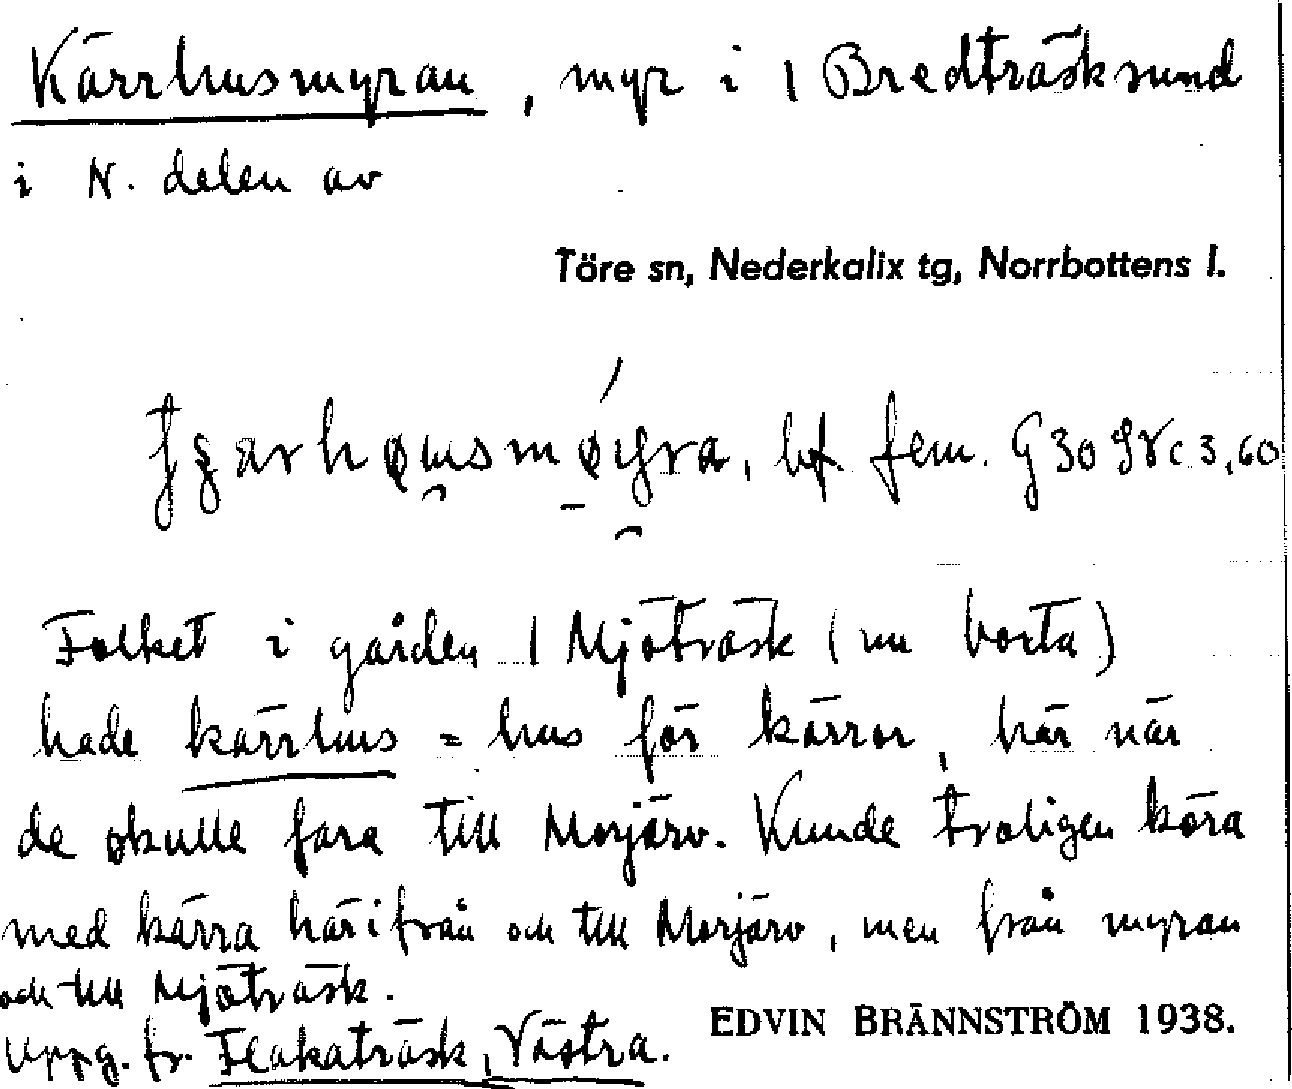 Kärrhusmyran, myr i 1 Bredträsksund
i N. delen av
Töre sn, Nederkalix tg, Norrbottens l.
bf fem. G 30 9Vc 3,60
Folket i gården 1 Mjöträsk (nu borta)
hade kärrhus = hus för kärror, här när
de skulle fara till Morjärv. Kunde troligen köra
med kärra härifrån och till Morjärv, men från myran
och till Mjöträsk.
Uppg. fr. Flakaträsk, Västra.
EDVIN BRÄNNSTRÖM 1938.